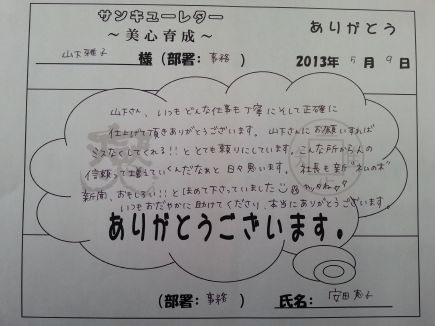 サンキューレター
～美心育成～
ありがとう
山下雅子 様(部署: 事務 )
2013年 5月 9日
山下さん、いつもどんな仕事も丁寧にそして正確に
仕上げて頂きありがとうございます。山下さんにお願いすれば
ミスなくしてくれる!!ととても頼りにしています。こんな所から人の
信頼って増えていくんだなぁと日々思います。社長も新"私の木"
新聞、おもしろい!!とほめて下さっていました ヤッタね♡
いつもおだやかに助けてくださり、本当にありがとうございます。
ありがとうございます。
(部署: 事務 ) 氏名: 安田恵子